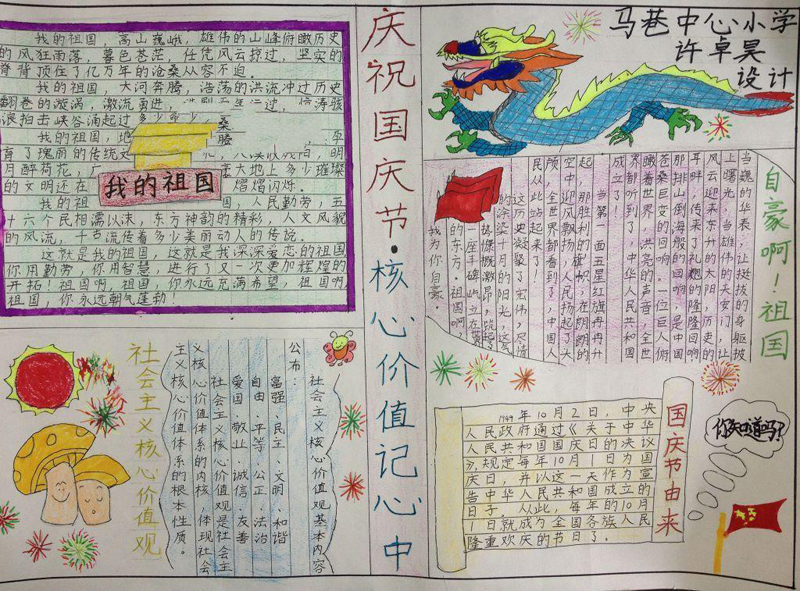 我的祖国，高山巍峨，雄伟的山峰俯瞰历史
的风狂雨落，暮色苍茫，任凭风云掠过，坚实的
脊背顶住了亿万年的沧桑从容不迫。
我的祖国，大河奔腾，浩荡的洪流冲过历史
翻卷的漩涡，激流勇进，
浪拍击峡谷涌起过多少
我的祖国，地
育了瑰丽的传统文
月醉荷花，
大地上多少璀璨
的文明还在
熠熠闪烁。
国，人民勤劳，五
十六个民相濡以沫，东方神韵的精彩，人文风貌
的风流，千古流传着多少美丽动人的传说。
这就是我的祖国，这就是我深深爱恋的祖国
你用勤劳，你用智慧，进行了又一次更加辉煌的
开拓！祖国啊，祖国，你永远充满希望，祖国啊
祖国，你永远朝气蓬勃！
我的祖国
庆祝国庆节·核心价值记心中
马巷中心小学
许卓昊
设计
自豪啊！祖国
当巍的华表，让挺拔的身躯披
上曙光，当雄伟的天安门，让
风云迎来东升的太阳，历史的
耳畔，传来了礼炮的隆隆回响
那排山倒海般的回响，是中国
苍桑巨变的回响。一位巨人俯
瞰着世界，洪亮的声音，全世
界都听到了，中华人民共和国
成立了
当第一面五星红旗冉冉升
起，那胜利的旗帜，在朗朗的
空中迎风飘扬，人民扬起了大
颅，全世界都看到了，中国人
民从此站起来了！
这历史凝聚了宏伟，尽情
的涂染十月的阳光，这
一座丰碑，屹立在
的东方。祖国啊
我为你自豪。
社会主义核心价值观
社会主义核心价值观基本内容
公布：
富强、民主、文明、和谐
自由、平等、公正、法治
爱国、敬业、诚信、友善
社会主义核心价值观是社会主
义核心价值体系的内核，体现社会
主义核心价值体系的根本性质。
国庆节由来
1949年10月2日，中央
人民政府通过《关于中华
人民共和国国庆日的决议
》，规定每年10月1日为国
庆日，并以这一天作为宣
告中华人民共和国成立的
日子。从此，每年的10月
1日就成为全国各族人民
隆重欢庆的节日了。
你知道吗？